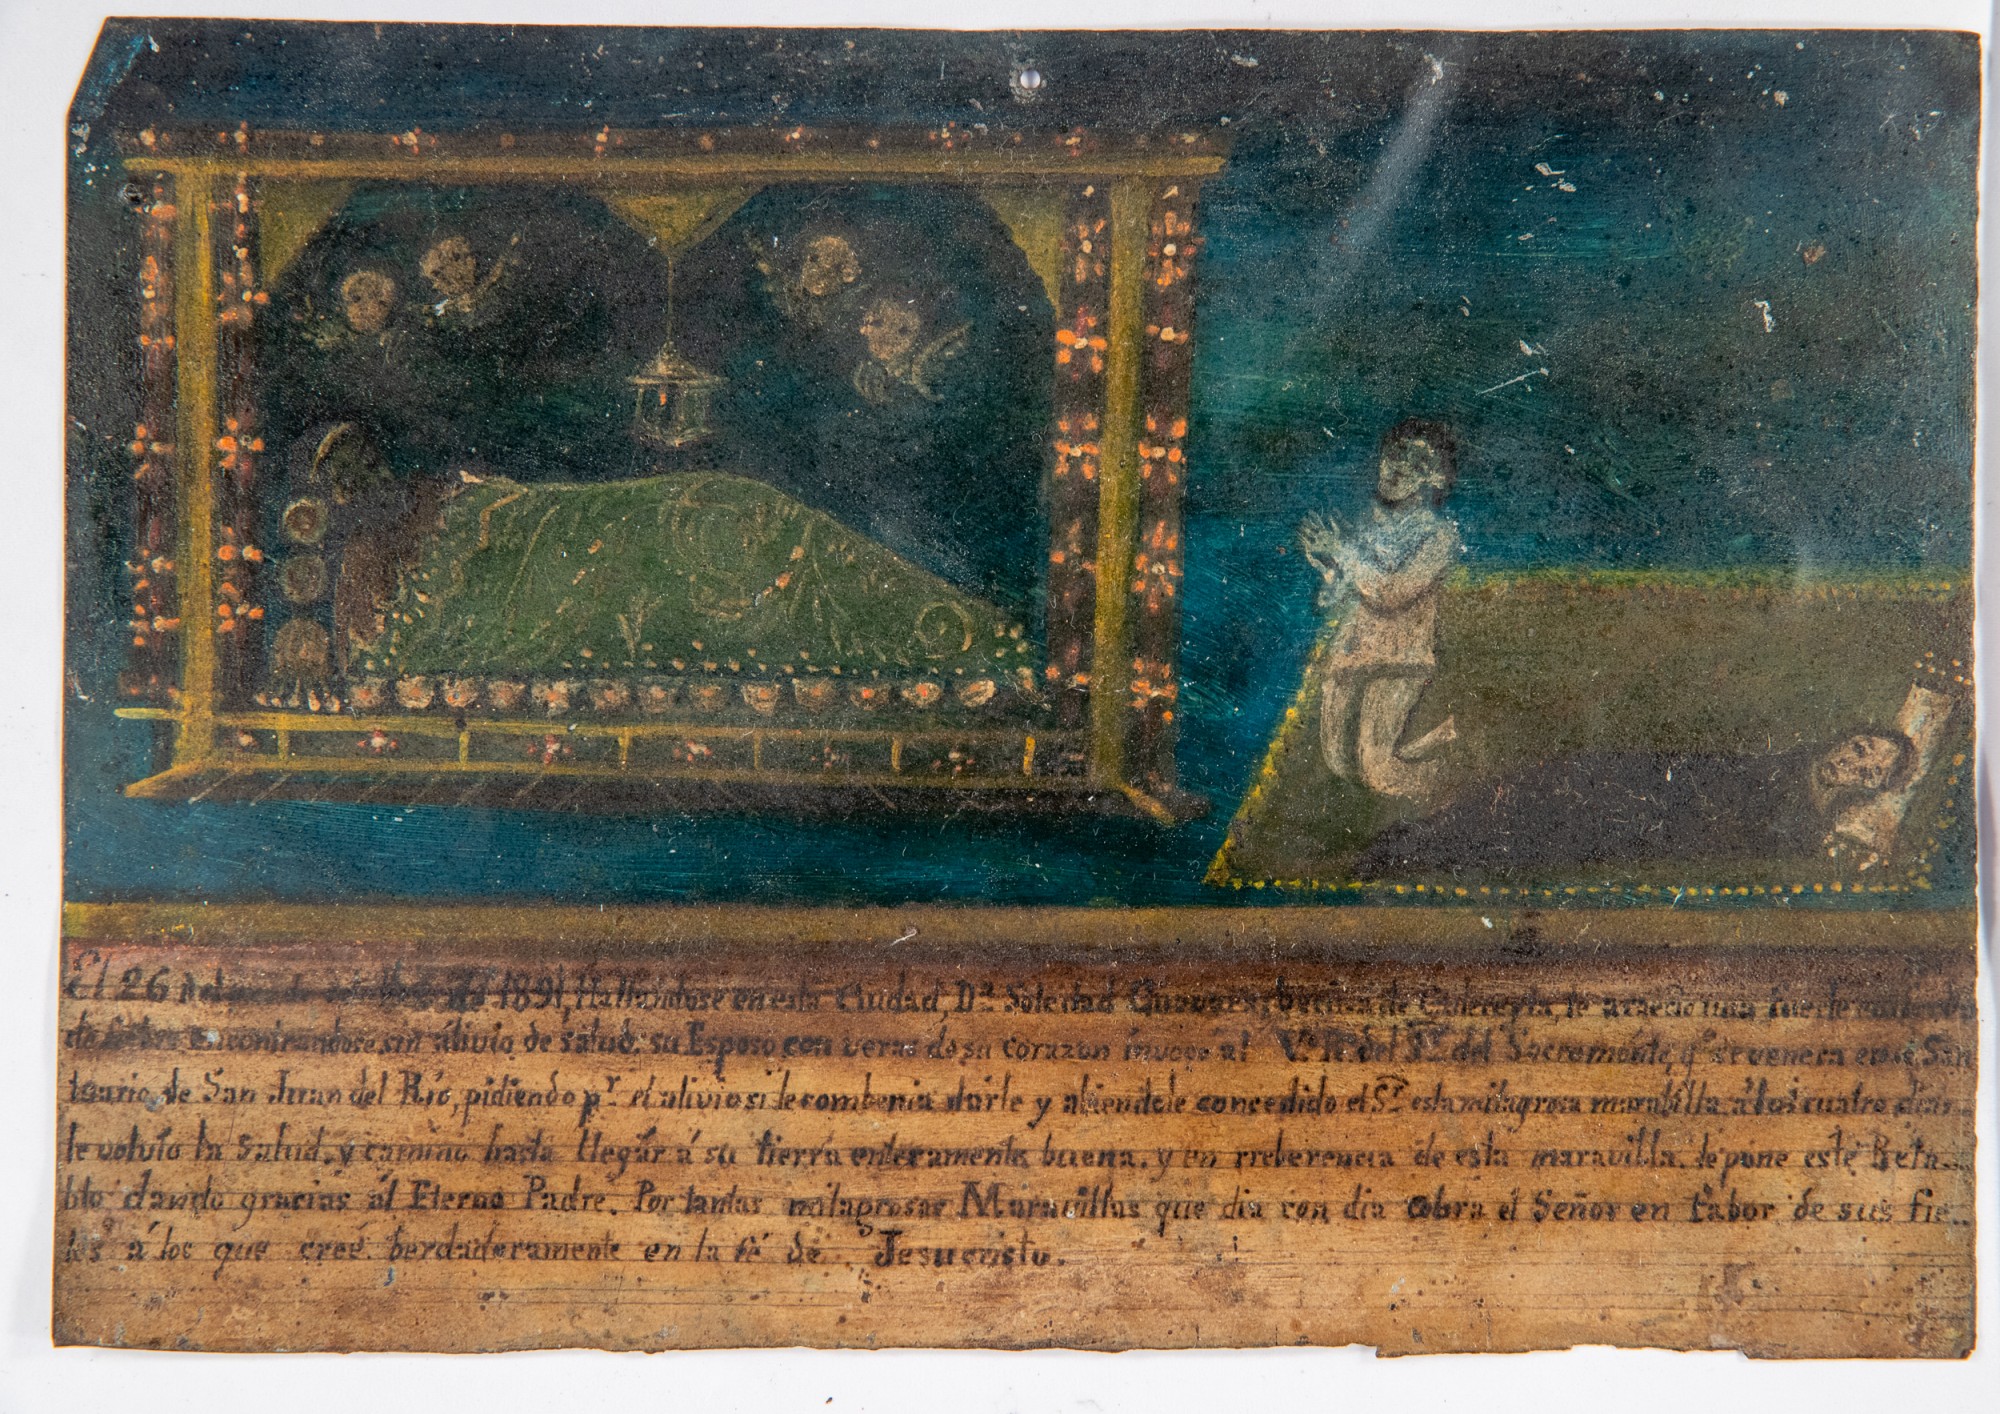 El 26 del de 1891, Hallandose en esta Ciudad, D.ª Soledad Guevara, vecina de Cadereyta, le atacó una fuerte
de fiebre, encontrandose sin álivio de salud; su Esposo con veras de su corazon invocó al V.R. del S.r del Sacromonte, q.e se venera en el San
tuario de San Juan del Río, pidiendo p.r el alivio si le combenia darle y abiendole concedido el S.r esta milagrosa marabilla, á los cuatro dias
le volvio la Salud, y camino hasta llegár á su tierra enteramente buena, y en rreberencia de esta maravilla, le pone este Reta..
blo dando gracias ál Eterno Padre. Por tantas milagrosas Maravillas que dia con dia obra el Señor en fabor de sus fie..
les á los que creé berdaderamente en la fé de Jesucristo.